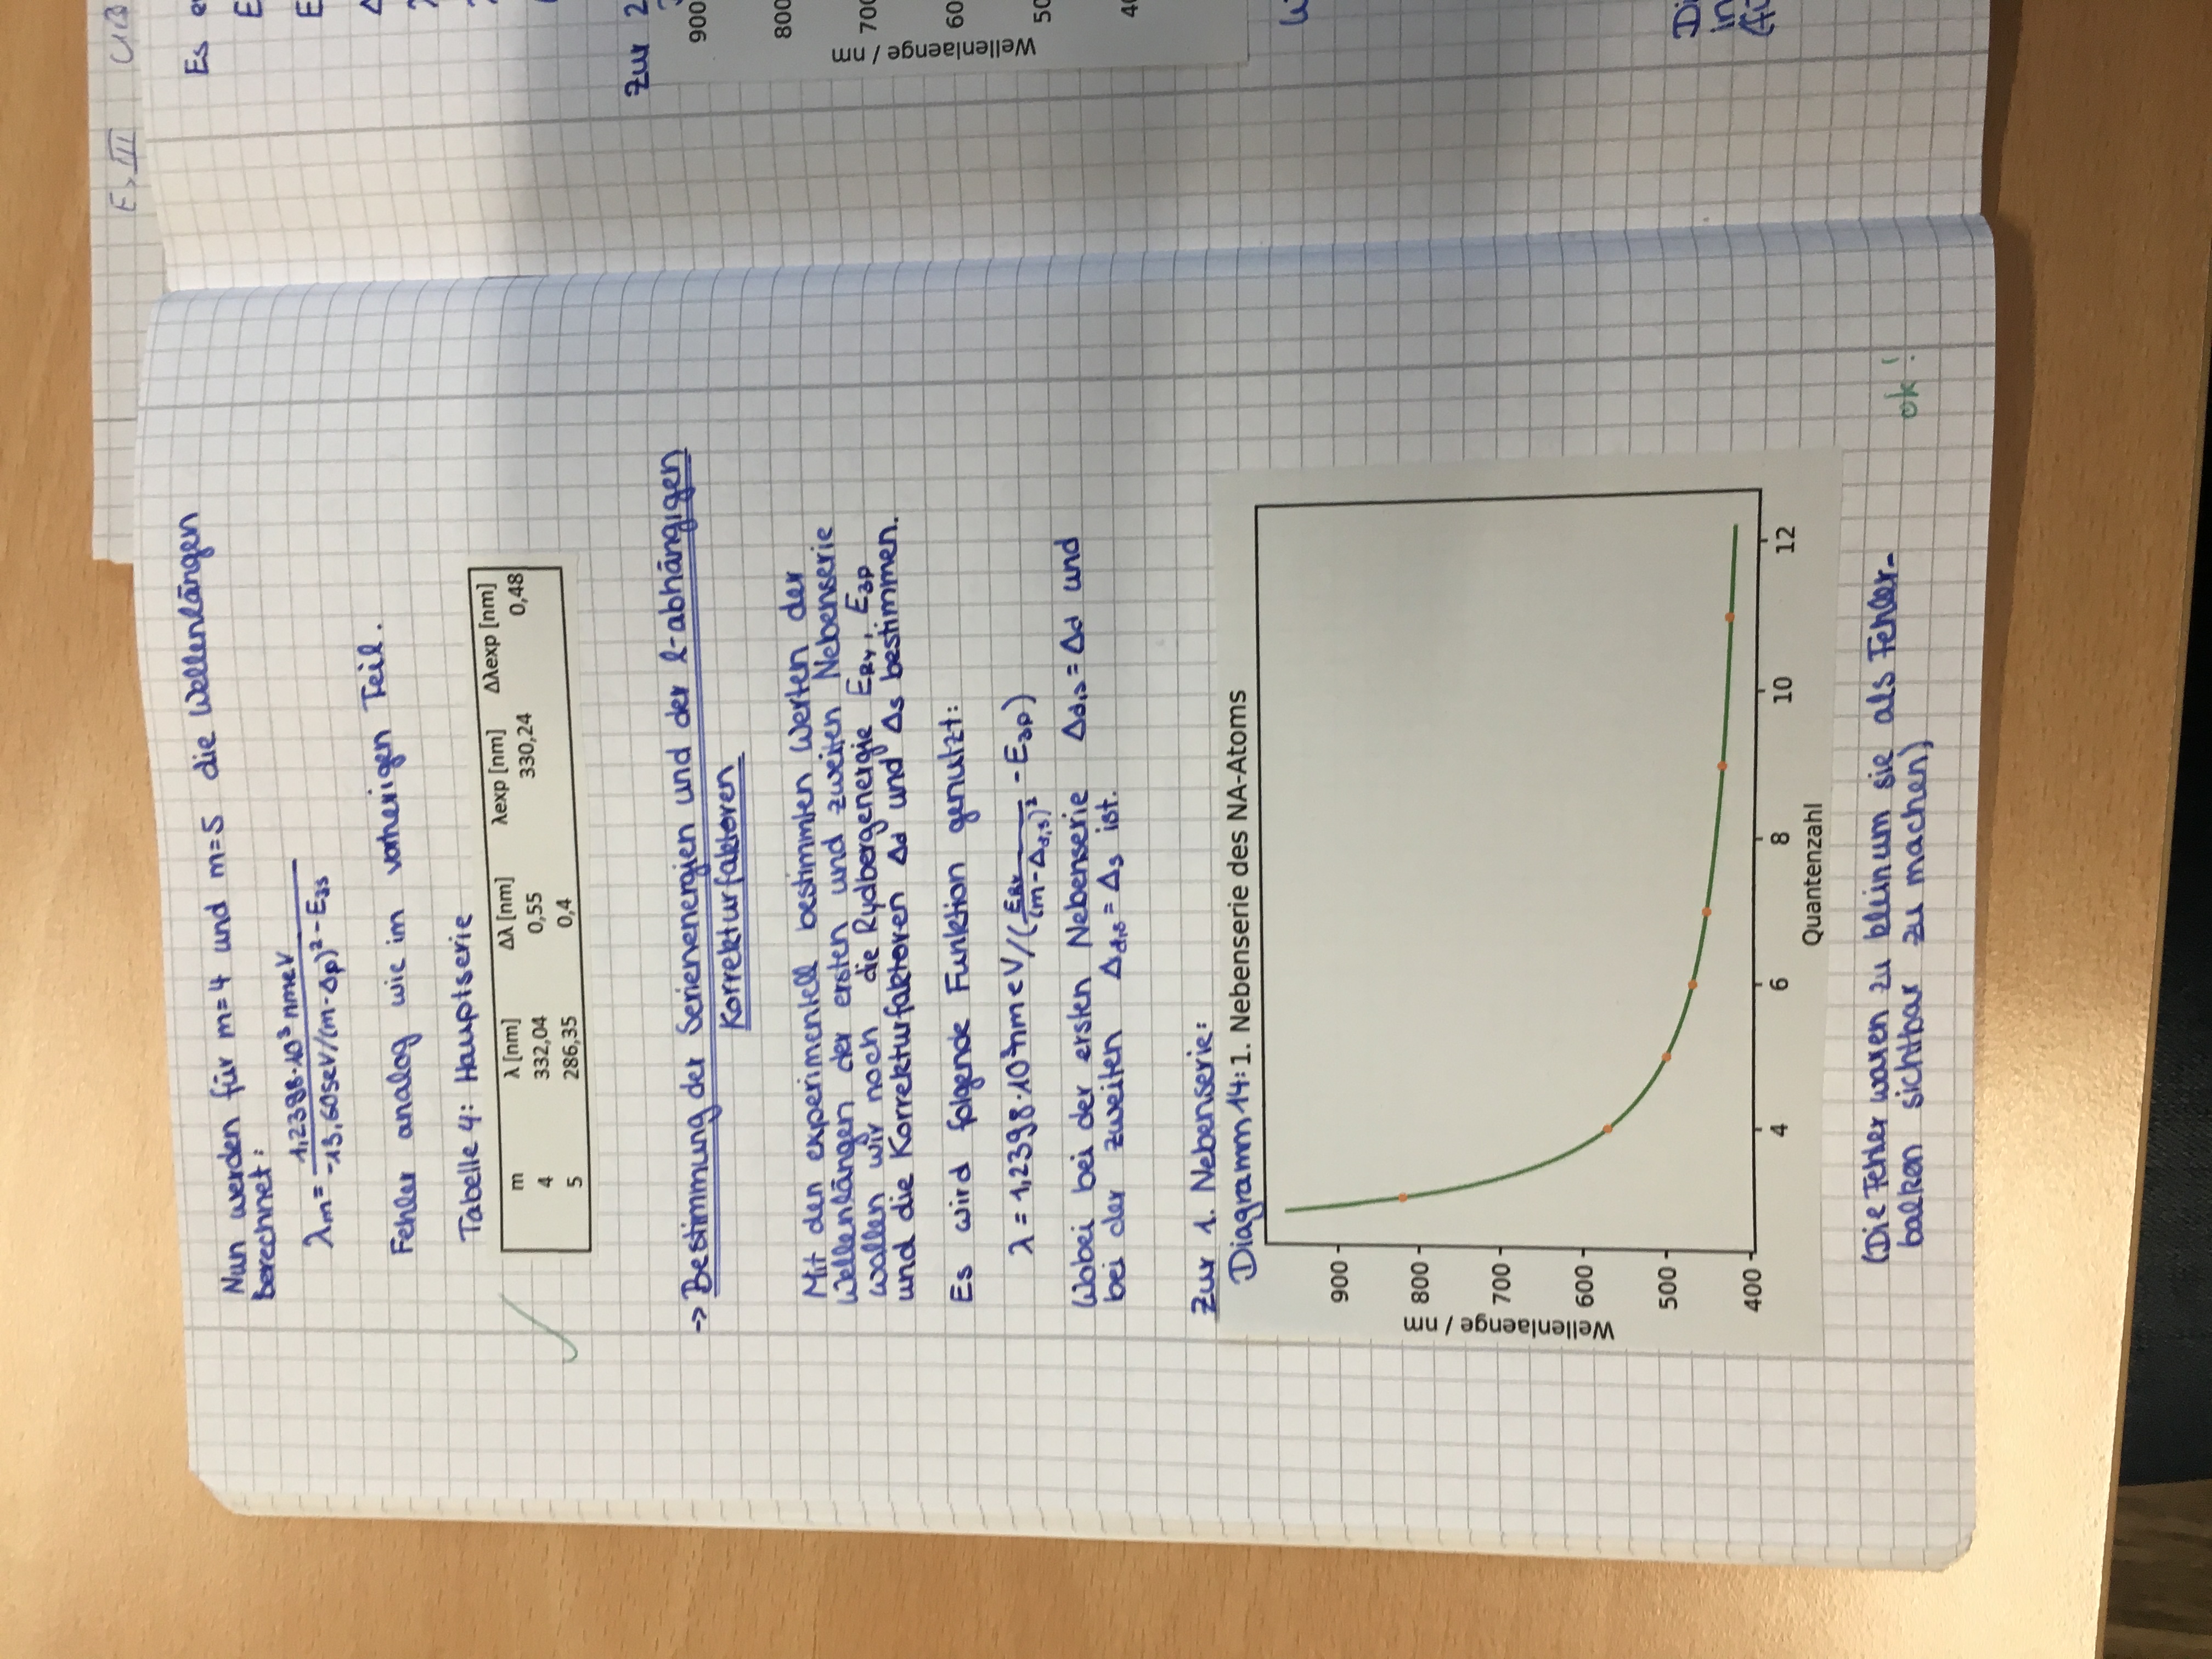 E, III
Nun werden für m=4 und m=5 die Wellenlängen
berechnet:
λm = 1,2398·10³ nmeV / -13,605eV/(m-Δp)² - E3s
Fehler analog wie im vorherigen Teil.
Tabelle 4: Hauptserie
m λ [nm] Δλ [nm] λexp [nm] Δλexp [nm]
4 332,04 0,55 330,24 0,48
5 286,35 0,4
-> Bestimmung der Serienenergien und der l-abhängigen
Korrekturfaktoren
Mit den experimentell bestimmten Werten der
Wellenlängen der ersten und zweiten Nebenserie
wollen wir noch die Rydbergenergie ERy, E3p
und die Korrekturfaktoren Δd und Δs bestimmen.
Es wird folgende Funktion genutzt:
λ = 1,2398·10³nmeV/(ERy/(m-Δd,s)² - E3p)
Wobei bei der ersten Nebenserie Δd,s = Δd und
bei der zweiten Δd,s = Δs ist.
Zur 1. Nebenserie:
Diagramm 14: 1. Nebenserie des NA-Atoms
900
800
700
600
500
400
Wellenlaenge / nm
4 6 8 10 12
Quantenzahl
(Die Fehler waren zu klein um sie als Fehler-
balken sichtbar zu machen)
ok!
Es
E
E
Zur 2
900
800
Wellenlaenge / nm